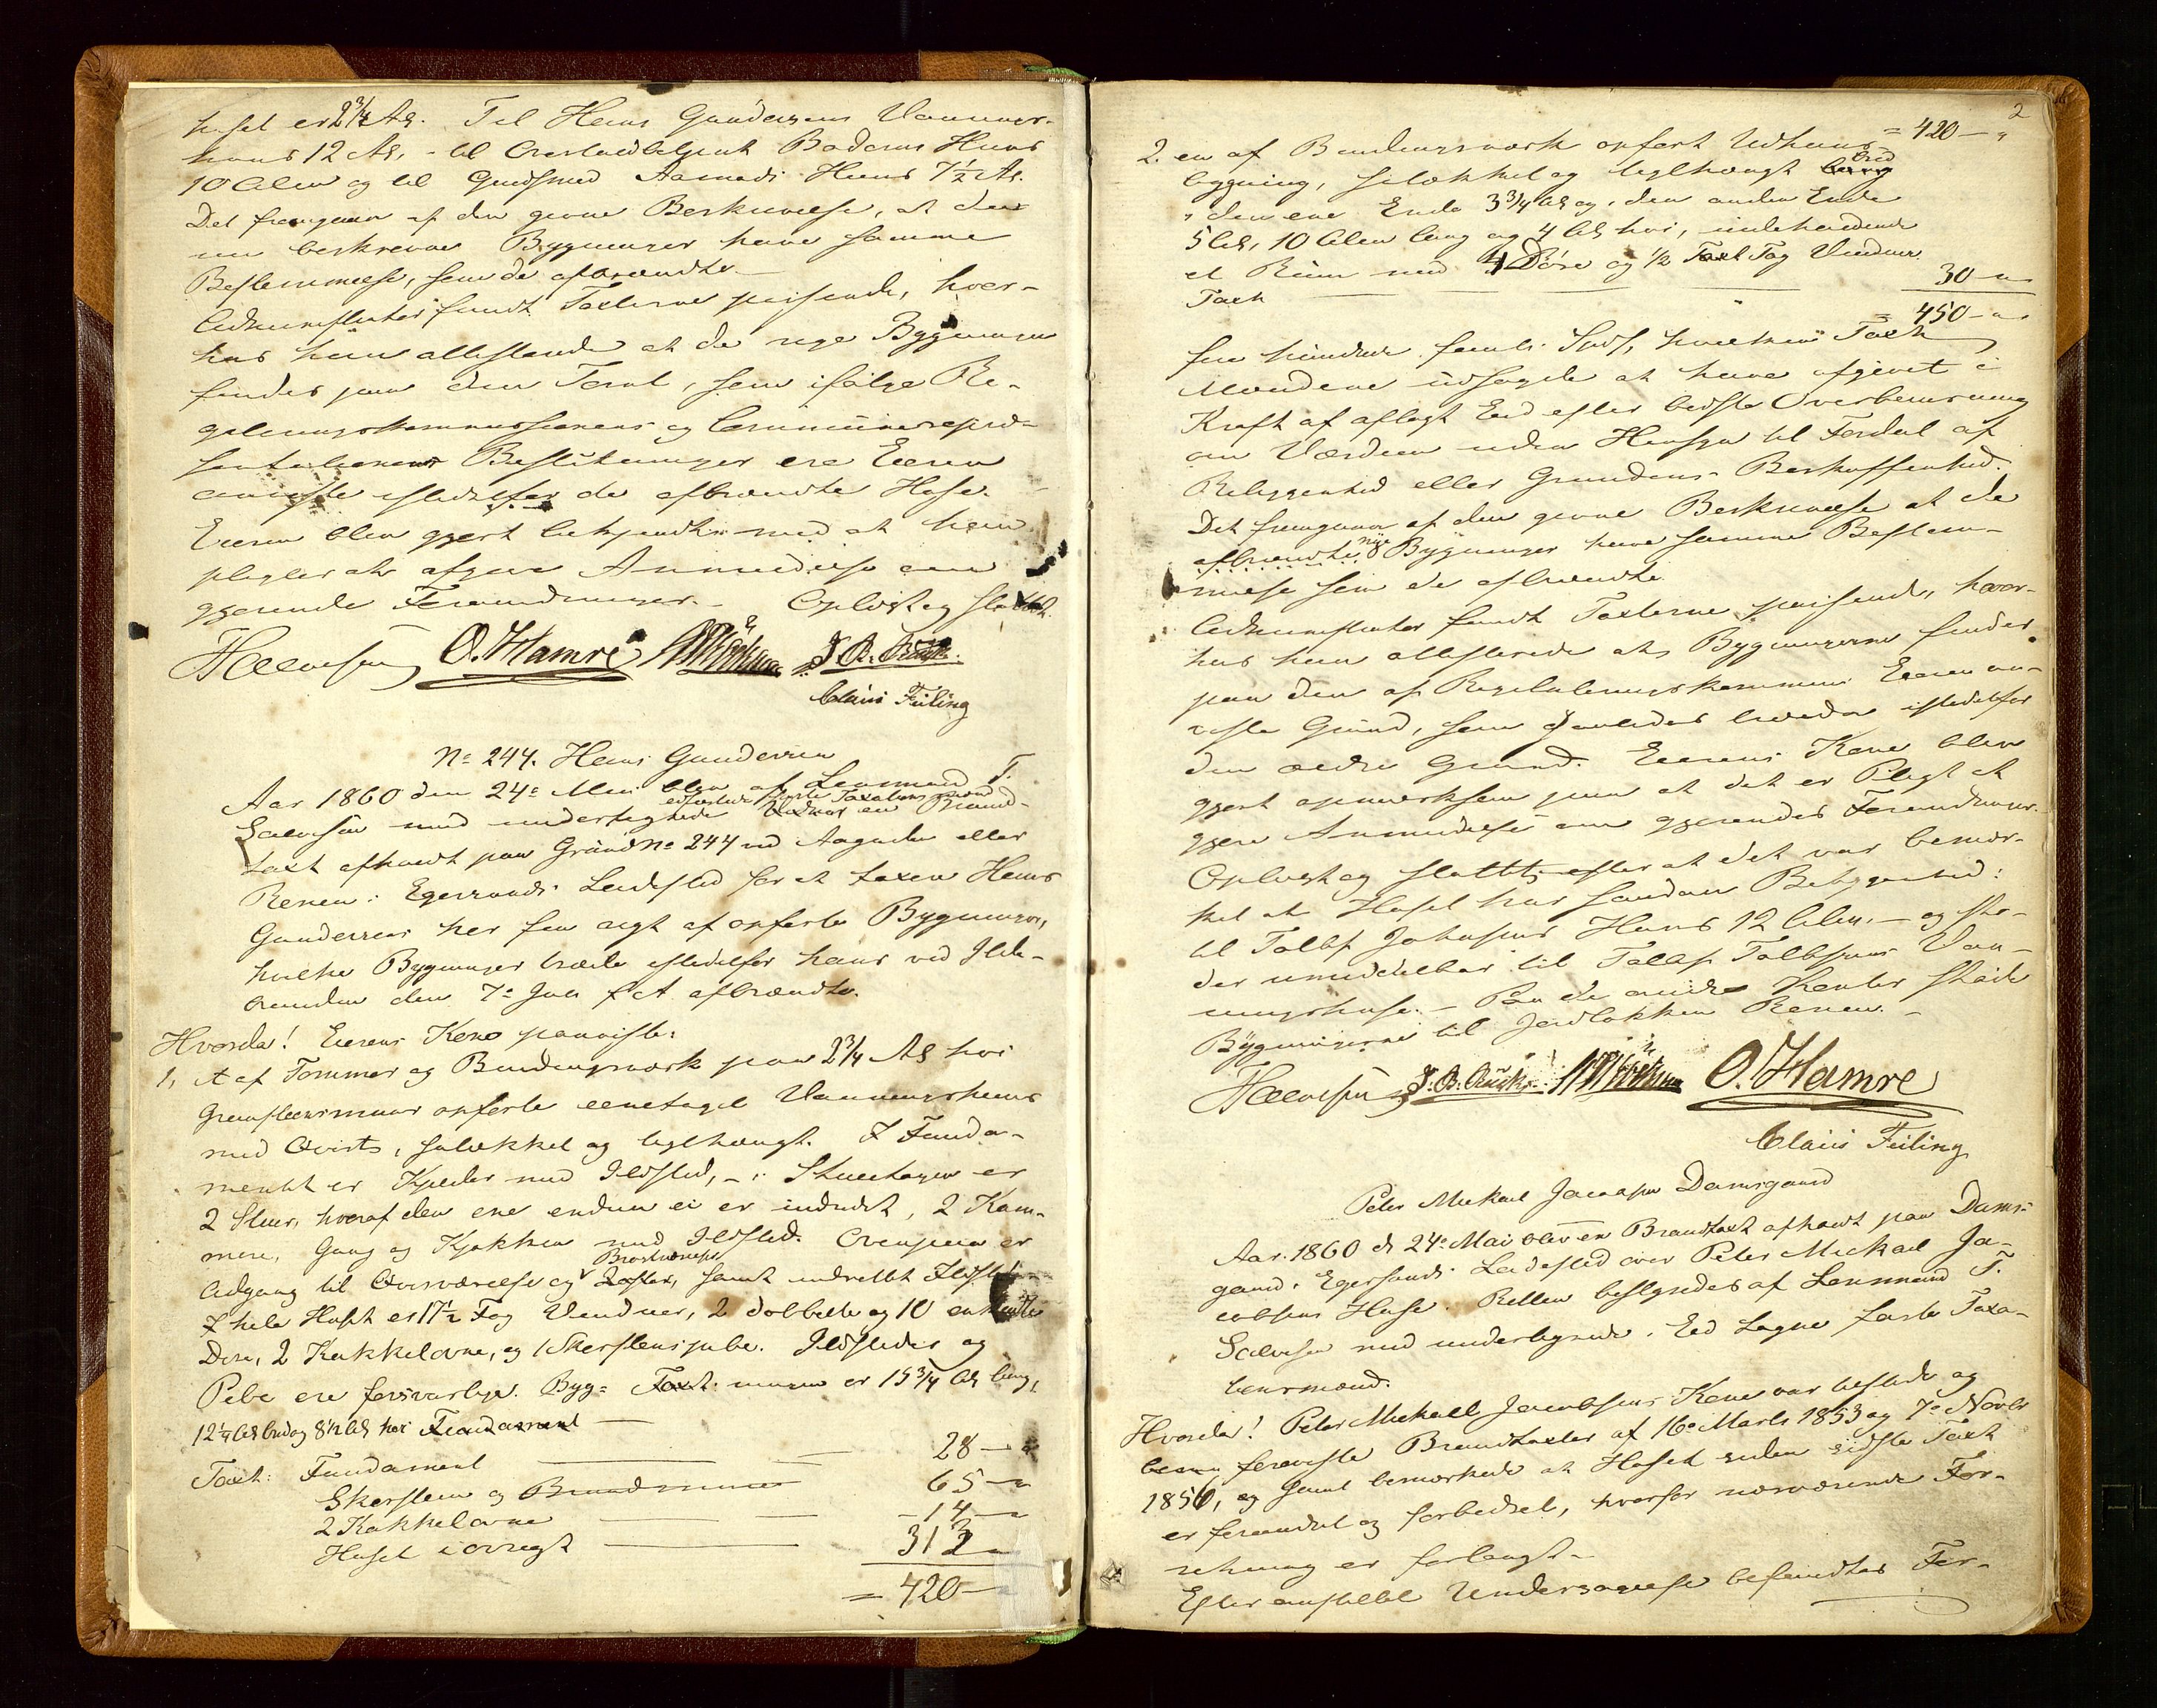 huset er 2¾ Al. Til Hans Gundersens Vaanings-
huus 12 Al, - til Baders Huus
10 Alen og til Guldsmed Aamodts Huus 7½ Al.
Det fremgaar af den givne Beskrivelse, at de
nu beskrevne Bygninger have samme
Bestemmelse, som de afbrændte.
Ledsmanden fandt Taxterne passende, hvor-
hos han attesterede at de nye Bygninger
findes paa den Tomt, som ifølge Re-
guleringskommissionens og Communerepræ-
sentationens Beslutninger ere Eieren
anviste istedetfor de afbrændte Huse.
Eieren blev gjort bekjendt med at han
pligter at afgive Anmeldelse om
gjorende Forandringer. - Oplæst og sluttet.
TSalvesen O. Hamre J. B. Rusk
Claus Feiling
No 244. Hans Gundersen
Aar 1860 den 24de Mai blev af Lensmand T.
edfæstede faste Taxationsmænd
Salvesen med undertegnede en Brand-
taxt afholdt paa Grund No 244 ved Aagaden eller
Renen i Egersunds Ladested for at taxere Hans
Gundersens her fra nyt af opførte Bygninger,
hvilke Bygninger træde istedetfor hans ved Ilde-
branden den 7de Juli f. A. afbrændte.
Hvorda! Eierens Kone paaviste:
1, et af Tømmer og Bindingsværk paa 2¾ Al høi
Graasteensmuur opførte eenetages Vaaningshuus
med Qvist, panelklædt og teglhængt. I Funda-
mentet er Kjelder med Ildsted, - i Stueetagen er
2 Stuer, hvoraf den ene endnu ei er indredt, 2 Kam-
mere, Gang og Kjøkken med Ildsted. Ovenpaa er
Adgang til Qvistværelse og Lofter, samt indrettet Ildsted.
I hele Huset er 17½ Fag Vinduer, 2 dobbelte og 10 enkelte
Døre, 2 Kakkelovne, og 1 Skorsteenspibe. Ildsteder og
Pibe ere forsvarlige. Byg= Taxt: ningen er 15¾ Al lang,
12¼ Al bred og 8½ Al høi Fundament
Taxt: Fundament 28 - "
Skorsteen og Brandmuur 65 - "
2 Kakkelovne 14 - "
Huset iøvrigt 313 "
= 420 - "
2
= 420 - "
2. en af Bindingsværk opført Udhuus-
bred
bygning, panelklædt og teglhængt
i den ene Ende 3¾ Al og i den anden Ende
5 Al, 10 Alen lang og 4 Al høi, indeholdende
et Rum med 4 Døre og ½ Fag Vinduer
Taxt 30 - "
= 450 - "
fire hundrede femti Spd, hvilken Taxt
Mændene udsagde at have afgivet i
Kraft af aflagt Eed efter bedste Overbeviisning
om Værdien uden Hensyn til Fordeel af
Beliggenhed eller Grundens Beskaffenhed.
Det fremgaar af den givne Beskrivelse at de
nye
afbrændte Bygninger have samme Bestem-
melse som de afbrændte.
Ledsmanden fandt Taxterne passende, hvor-
hos han attesterede at Bygningerne findes
paa den af Reguleringskommissionen Eieren an-
viste Grund, som saaledes træder istedetfor
den ældre Grund. Eierens Kone blev
gjort opmærksom paa at det er Pligt at
gjøre Anmeldelse om gjorendes Forandringer.
Oplæst og sluttet, efter at det var bemær-
ket at Huset har saadan Beliggenhed:
til Tallf Johnsens Huus 12 Alen. - og stø-
der umiddelbar til Tallf Tallfsens Vaa-
ningshuse. - Paa de andre Kanter støde
Bygningerne til Jordløkken Renen. -
TSalvesen J. B. Rusk O. Hamre
Claus Feiling
Peter Mickael Jacobsen Damsgaard
Aar 1860 d 24de Mai blev en Brandtaxt afholdt paa Dams-
gaard i Egersunds Ladested over Peter Mickael Ja-
cobsens Huse. Retten bestyredes af Lensmand T.
Salvesen med undertegnede Eed Lagne faste Taxa-
tionsmænd.
Hvorda! Peter Mickaell Jacobsens Kone var tilstede og
foreviste Brandtaxter af 16de Marts 1853 og 7de Novbr
1856, og samt bemærkede at Huset siden sidste Taxt
er forandret og forbedret, hvorfor nærværende For-
retning er forlangt.
Efter anstillet Undersøgelse befandtes For-